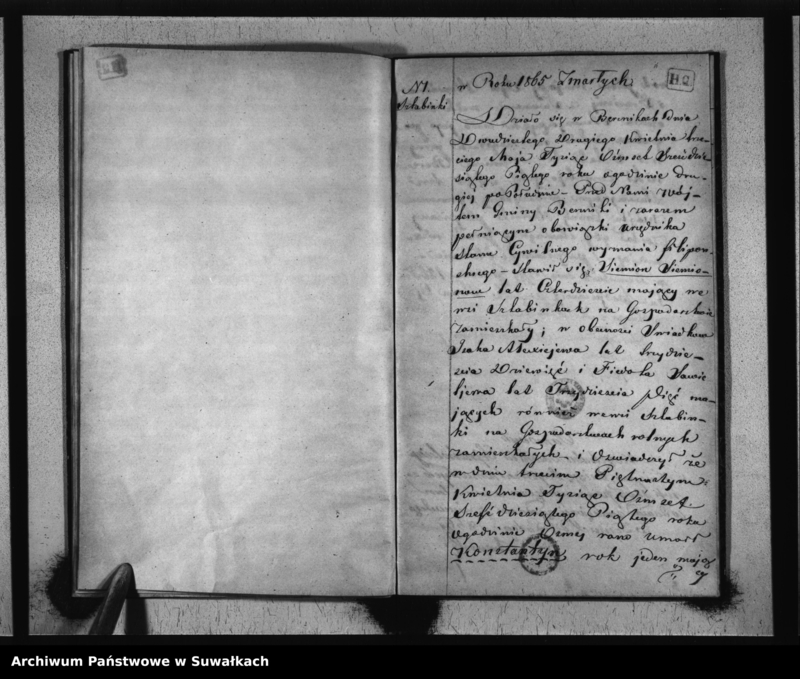 w Roku 1865 Zmarłych
N 1.
Szlabinki
Działo się w Bernikach Dnia
Dwudziestego Drugiego Kwietnia trze-
ciego Maja Tysiąc Ośmset Sześćdzie-
siątego Piątego roku o godzinie dru-
giej po Południu – Przed Nami Wój-
tem Gminy Berniki i zarazem
pełniącym obowiązki urzędnika
Stanu Cywilnego wyznania filipow-
skiego – stawił się, Siemion Siemio-
now lat Czterdzieście mający we
wsi Szlabinkach na Gospodarstwie
zamieszkały; w obecności Świadków
Izaka Alexiejewa lat trzydzie-
ścia Dziewięć i Fiedoła Sawie
ljewa lat Trzydzieścia Pięć ma-
jących również we wsi Szlabin-
ki na Gospodarstwach rolnych
zamieszkałych. i Oświadczył że
w dniu trzecim Piętnastym
Kwietnia Tysiąc Ośmset
Sześćdziesiątego Piątego roku
o godzinie Ósmej rano umarł
Konstantyn rok jeden mają
cy
Archiwum Państwowe w Suwałkach